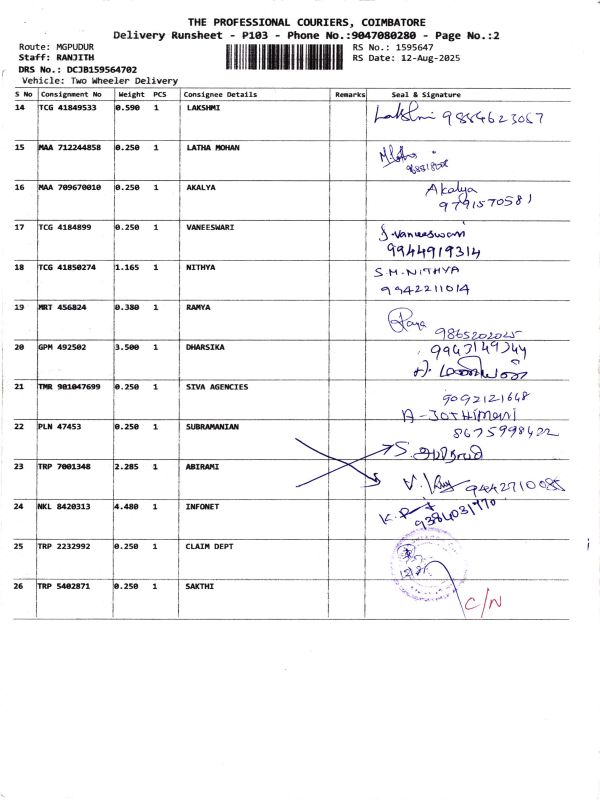 THE PROFESSIONAL COURIERS, COIMBATORE
Delivery Runsheet - P103 - Phone No.:9047080280 - Page No.:2
Route: MGPUDUR
RS No.: 1595647
Staff: RANJITH
RS Date: 12-Aug-2025
DRS No.: DCJB159564702
Vehicle: Two Wheeler Delivery
S No Consignment No Weight PCS Consignee Details Remarks Seal & Signature
14 TCG 41849533 0.590 1 LAKSHMI Lakshmi 9884623067
15 MAA 712244858 0.250 1 LATHA MOHAN
16 MAA 709670010 0.250 1 AKALYA Akalya
9791570581
17 TCG 4184899 0.250 1 VANEESWARI S.Vaneeswari
9944919314
18 TCG 41850274 1.165 1 NITHYA S.M.NITHYA
9942211014
19 MRT 456824 0.380 1 RAMYA
9865202025
20 GPM 492502 3.500 1 DHARSIKA 9943149344
21 TMR 901047699 0.250 1 SIVA AGENCIES 9092121648
A-JOTHIMANI
22 PLN 47453 0.250 1 SUBRAMANIAN 8675998422
23 TRP 7001348 2.285 1 ABIRAMI 9442710085
24 NKL 8420313 4.480 1 INFONET 9384031770
25 TRP 2232992 0.250 1 CLAIM DEPT
26 TRP 5402871 0.250 1 SAKTHI C/N